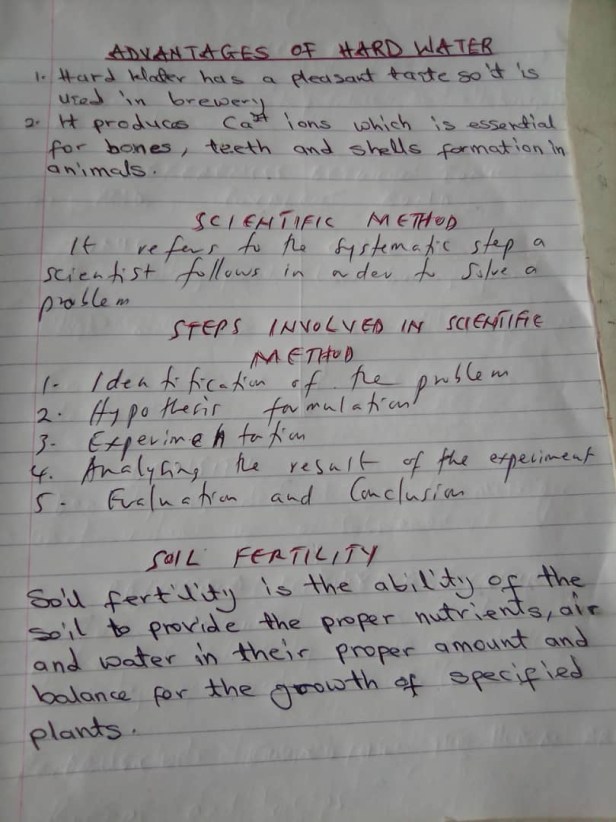 ADVANTAGES OF HARD WATER
1. Hard Water has a pleasant taste so it is
used in brewery
2. It produces Ca²⁺ ions which is essential
for bones, teeth and shells formation in
animals.
SCIENTIFIC METHOD
It refers to the systematic step a
scientist follows in order to solve a
problem
STEPS INVOLVED IN SCIENTIFIC
METHOD
1. Identification of the problem
2. Hypothesis formulation
3. Experimentation
4. Analysing the result of the experiment
5. Evaluation and Conclusion
SOIL FERTILITY
Soil fertility is the ability of the
soil to provide the proper nutrients, air
and water in their proper amount and
balance for the growth of specified
plants.